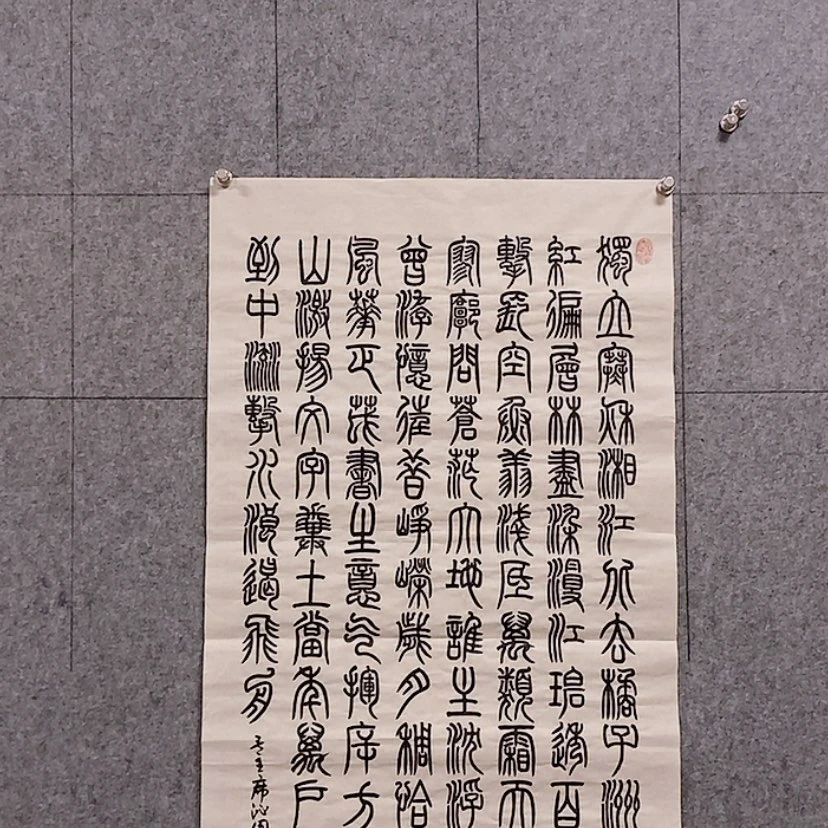 獨立寒秋湘江北去橘子洲
紅徧層林盡染漫江碧透百
擊長空魚翔淺底萬類霜天
寥廓問蒼茫大地誰主沈浮
曾游憶往昔崢嶸歲月稠恰
風華正茂書生意气揮斥方
山激揚文字糞土當年萬戶
到中流擊水浪遏飛舟
毛主席沁園